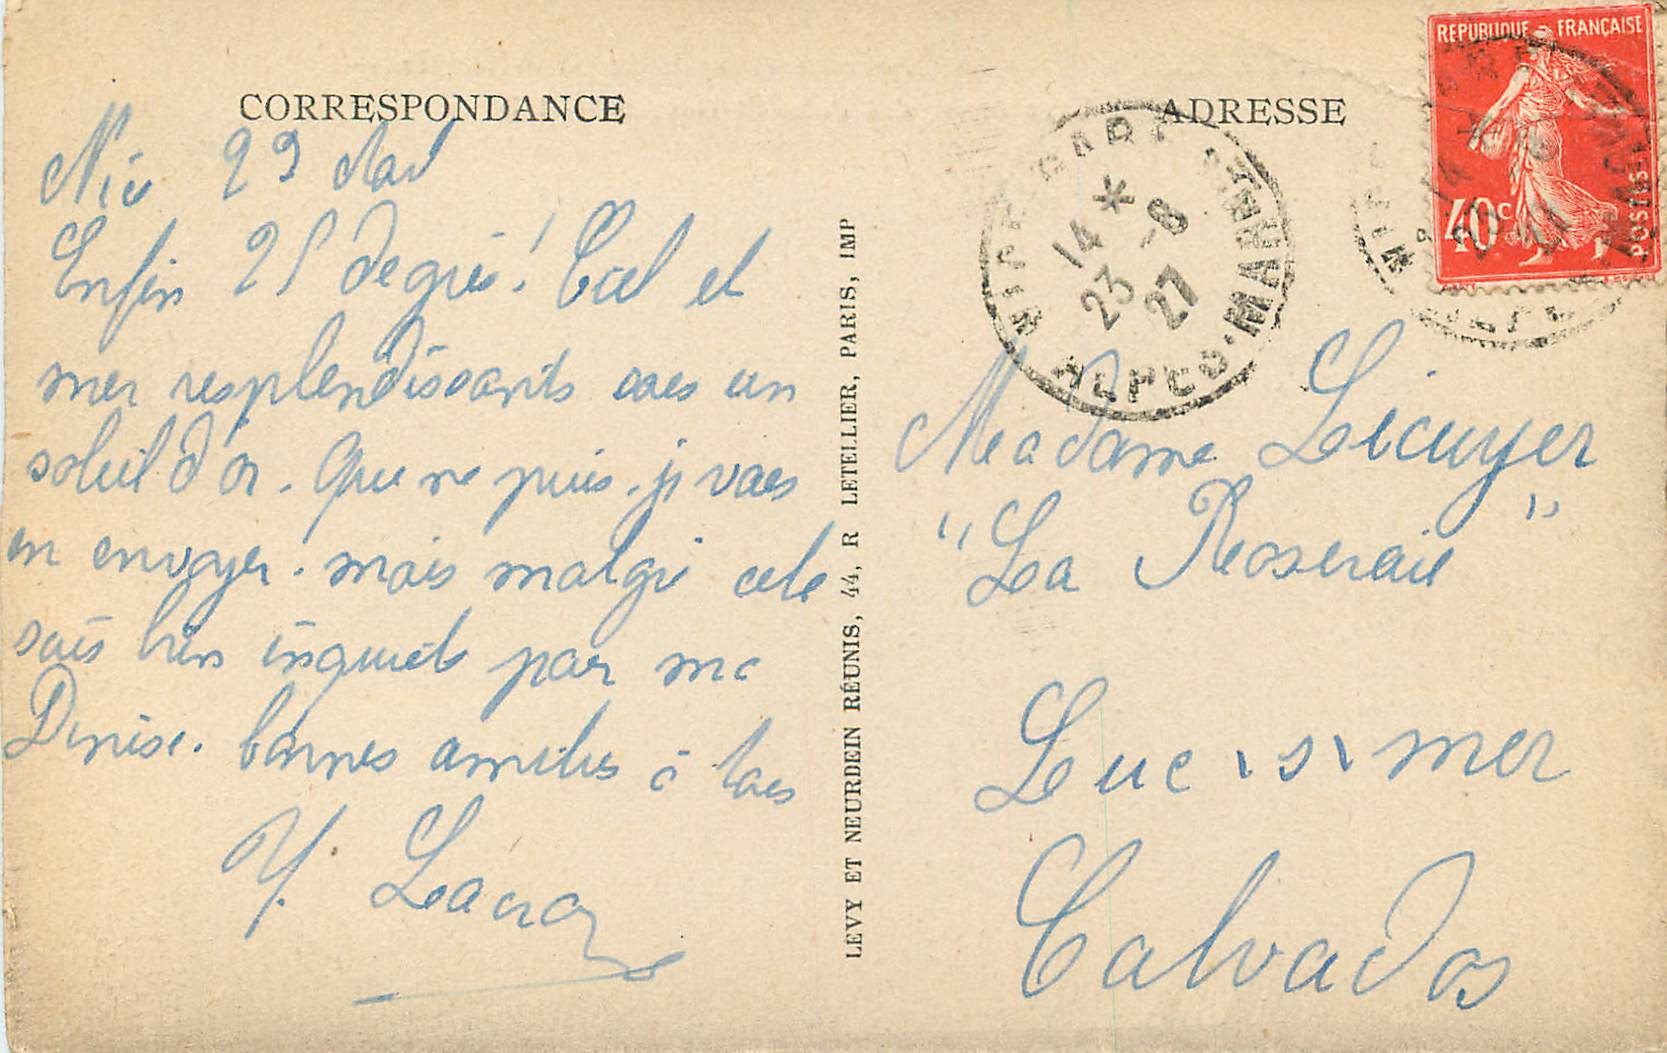 CORRESPONDANCE
Nice 23 Aout
Enfin 25 degrés! Ciel et
mer resplendissants avec un
soleil d'or. Que ne puis-je vous
en envoyer. mais malgré cela
suis bien inquiète par ma
Denise. bonnes amitiés à tous
Y.
ADRESSE
REPUBLIQUE FRANÇAISE
40c
POSTES
14 *
23 - 8
27
ALPES MARIT
Madame Lécuyer
"La Roseraie"
Luc s mer
Calvados
LEVY ET NEURDEIN RÉUNIS, 44, R LETELLIER, PARIS, IMP